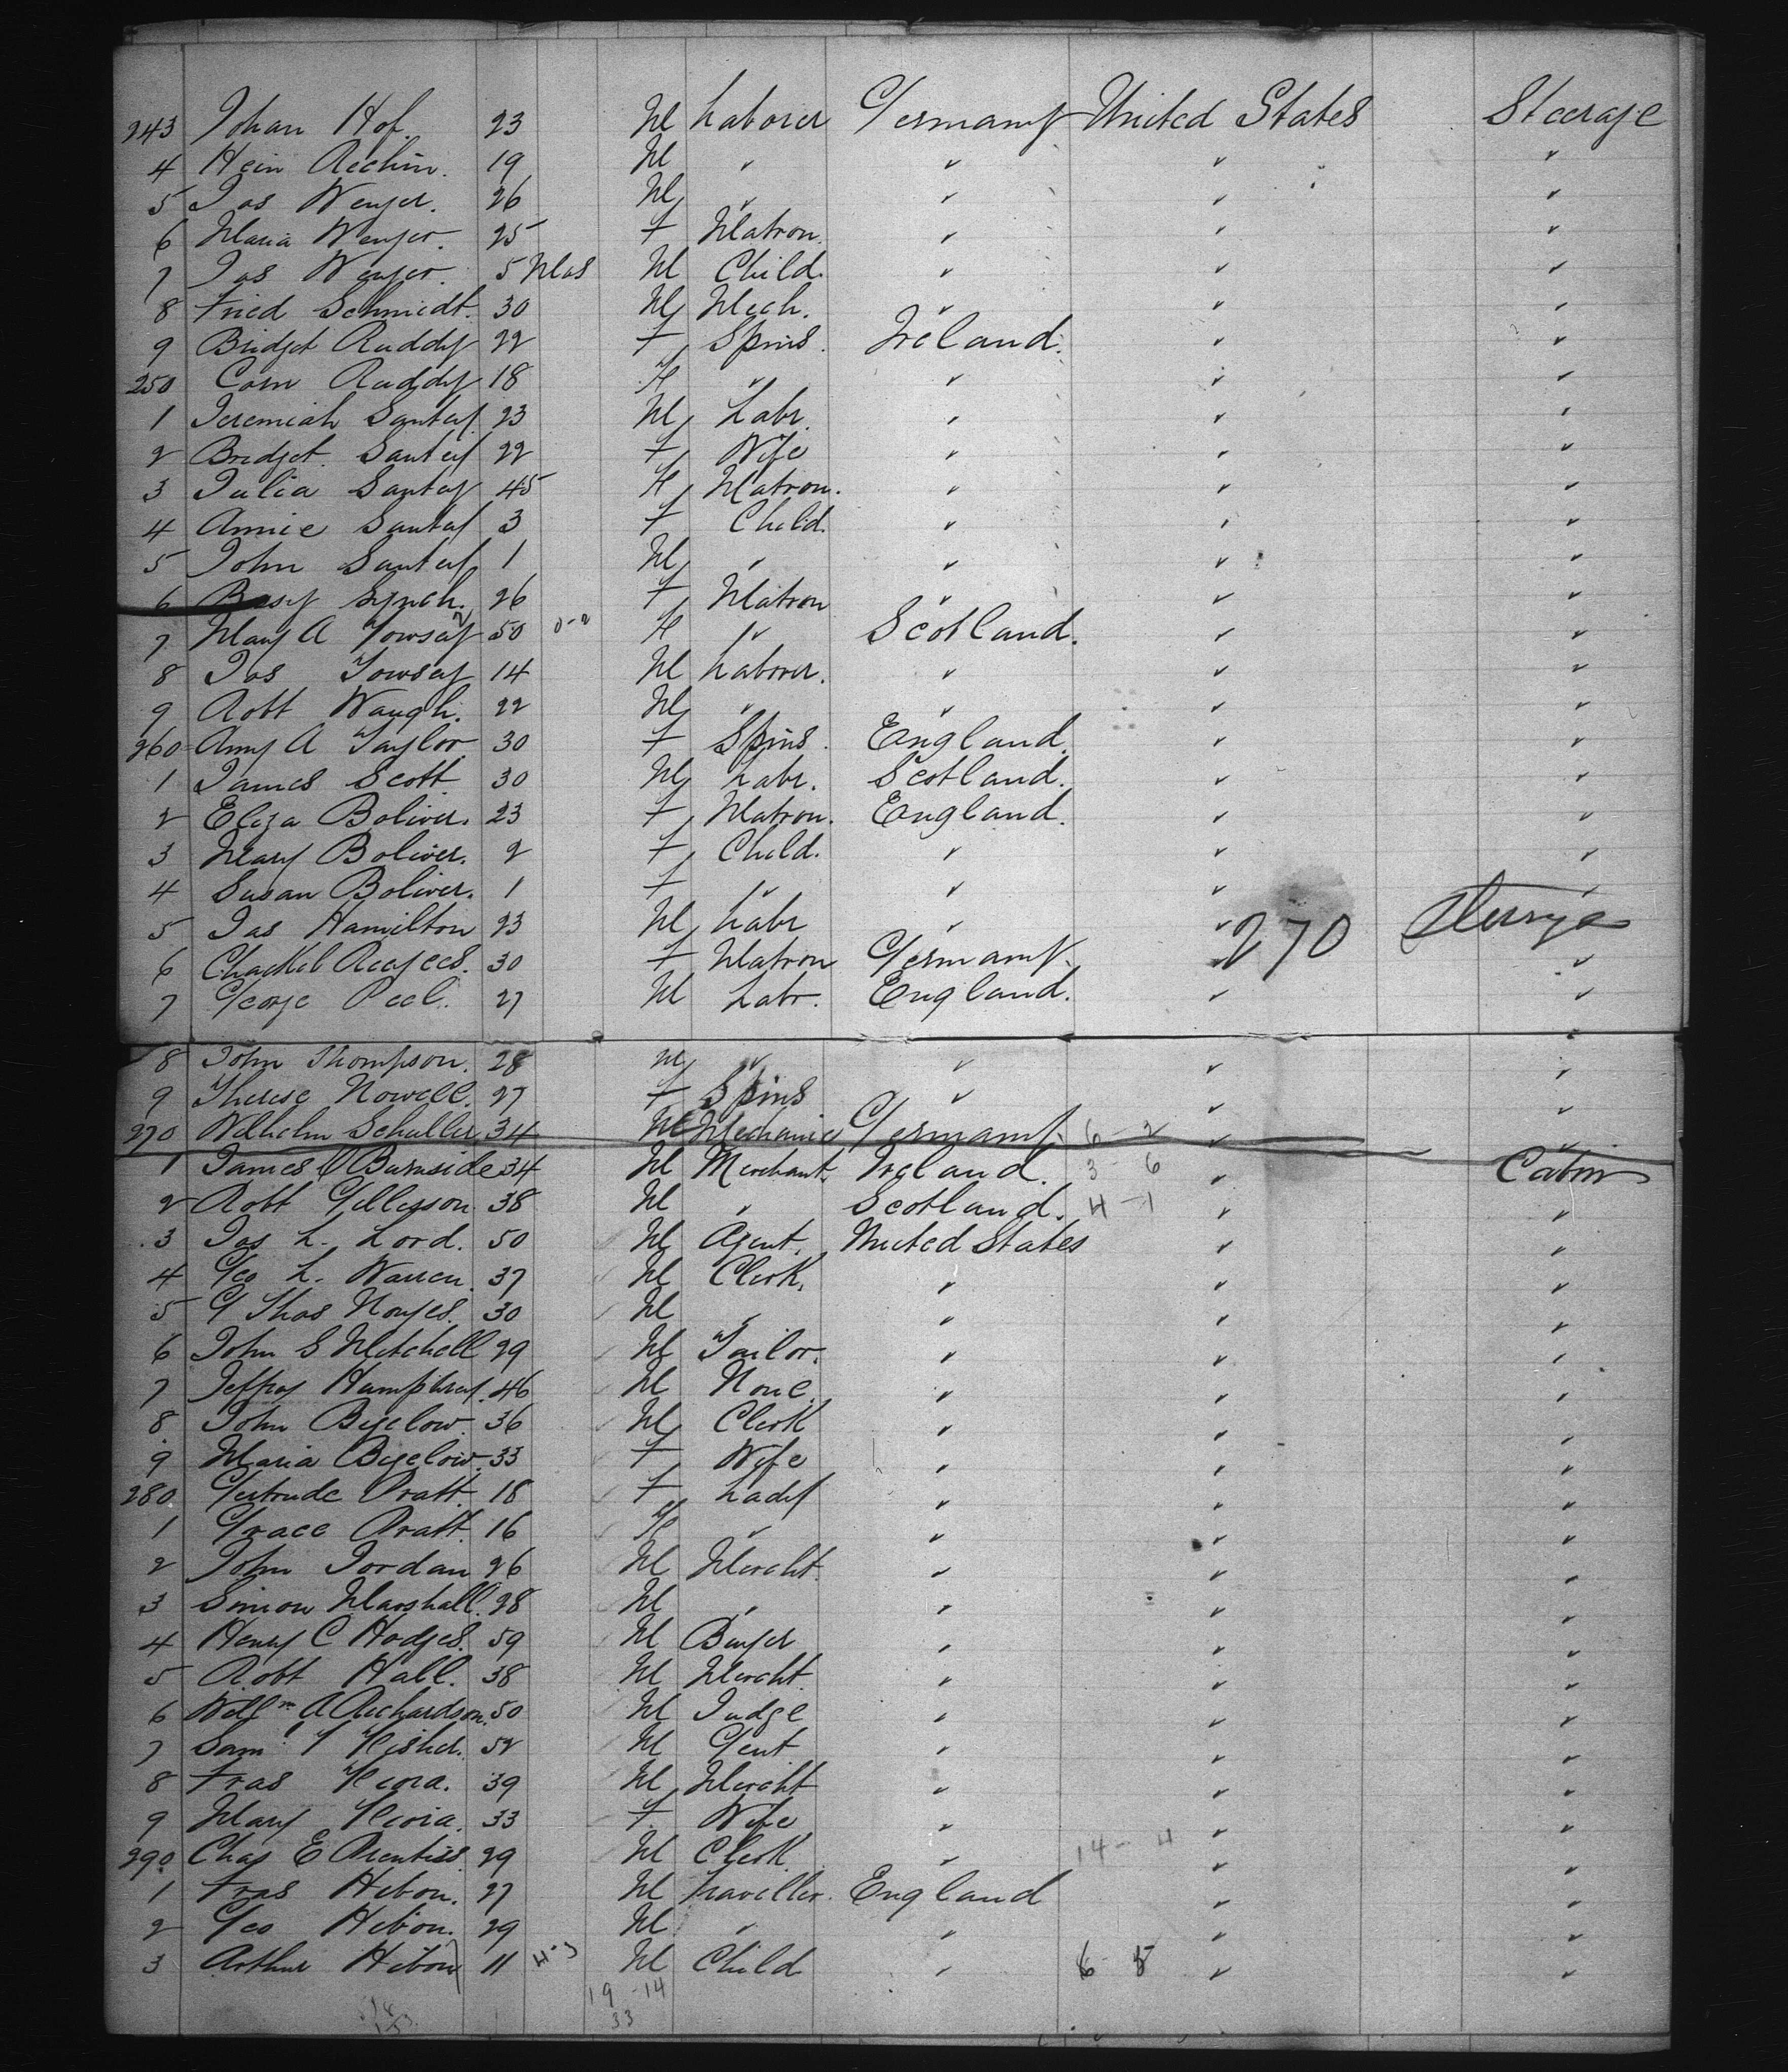 243 Johan Hof. 23 M Laborer Germany United States Steerage
4 Hein Aechin. 19 M " " " "
5 Jos Wenger. 26 M " " " "
6 Maria Wenger. 25 F Matron. " " "
7 Jos Wenger. 5 Mos M Child. " " "
8 Fried Schmidt. 30 M Mech. " " "
9 Bridget Ruddy 22 F Spins. Ireland. " "
250 Corn Ruddy 18 F " " " "
1 Jeremiah Santry. 23 M Labr. " " "
2 Bridget. Santry 22 F Wife " " "
3 Julia Santry 45 F Matron. " " "
4 Annie Santry 3 F Child. " " "
5 John Santry 1 M " " " "
6 Lynch. 26 F Matron " " "
7 Mary A Towsey 50 0-2 F " Scotland. "  "
8 Jos Towsey 14 M Laborer. " " "
9 Robt Waugh. 22 M " " " "
260 Amy A Taylor 30 F Spins. England. " "
1 James Scott. 30 M Labr. Scotland. " "
2 Eliza Boliver. 23 F Matron. England. " "
3 Mary Boliver. 2 F Child. " " "
4 Susan Boliver. 1 F " " " "
5 Jas Hamilton 23 M Labr " " 270 Steerage
6 30 F Matron Germany. " "
7 George Peel. 27 M Labr. England. " "
8 John Thompson. 28 M " " " "
9 Therese Nowell. 27 F Spins " " "
270 Wilhelm Schuller 34 M Mechanic Germany. 6-2 " "
1 James Burnside 34 M Merchant. Ireland. 3-6 " Cabin
2 Robt Gillesson 38 M " Scotland. 4-1 " "
3 Jas L. Lord. 50 M Agent. United States " "
4 Geo L. Warren 37 M Clerk. " " "
5 G Thos Noyes. 30 M " " " "
6 John S Mitchell 29 M Tailor. " " "
7 Jeffrey Humphrey. 46 M None. " " "
8 John Bigelow. 36 M Clerk " " "
9 Maria Bigelow. 33 F Wife " " "
280 Gertrude Pratt. 18 F Lady " " "
1 Grace Pratt. 16 F " " " "
2 John Jordan 26 M Mercht. " " "
3 Simon Marshall. 28 M " " " "
4 Henry C Hodges. 59 M Buyer " " "
5 Robt Hall. 38 M Mercht. " " "
6 Willm A Richardson. 50 M Judge " " "
7 Saml T Fisher. 52 M Gent " " "
8 Fras 39 M Mercht " " "
9 Mary 33 F Wife " " "
290 Chas E Prentiss 29 M Clerk. " 14-4 " "
1 Fras Hibon. 27 M Traveller. England " "
2 Geo Hibon. 29 M " " " "
3 Arthur Hibon 11 4-3 M Child " 6 5 " "
19-14
33